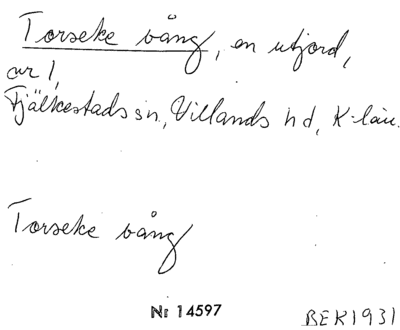 Torseke vång, en utjord,
av 1,
Fjälkestads sn, Villands hd, K-län.
Torseke vång
Nr 14597
BEK1931